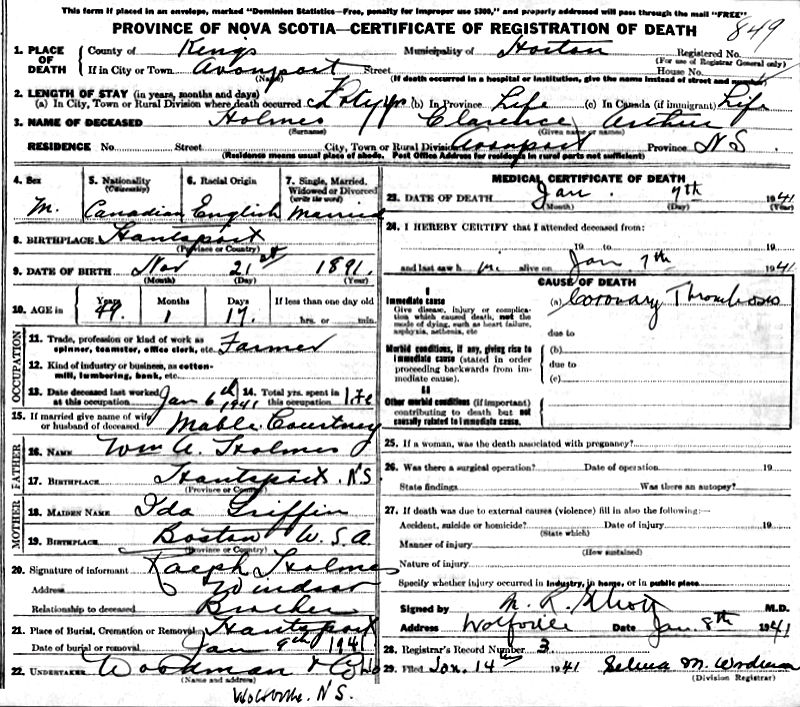 This form if placed in an envelope, marked "Dominion Statistics—Free, penalty for improper use $300," and properly addressed will pass through the mail "FREE"
849
PROVINCE OF NOVA SCOTIA—CERTIFICATE OF REGISTRATION OF DEATH
1. PLACE OF DEATH
County of Kings Municipality of Horton Registered No.
(For use of Registrar General only)
If in City or Town Avonport Street House No.
(Name) (If death occurred in a hospital or institution, give the name instead of street and number)
2. LENGTH OF STAY (in years, months and days)
(a) In City, Town or Rural Division where death occurred yrs (b) In Province Life (c) In Canada (if immigrant) Life
3. NAME OF DECEASED Holmes Clarence Arthur
(Surname) (Given name or names)
RESIDENCE No. Street City, Town or Rural Division Avonport Province N S.
(Residence means usual place of abode. Post Office Address for residence in rural parts not sufficient)
4. Sex M.
5. Nationality (Citizenship) Canadian
6. Racial Origin English
7. Single, Married, Widowed or Divorced (write the word) Married
8. BIRTHPLACE Hantsport
(Province or Country)
9. DATE OF BIRTH Nov 21st 1891.
(Month) (Day) (Year)
10. AGE in Years Months Days If less than one day old
49. 1 17. hrs. or min.
OCCUPATION
11. Trade, profession or kind of work as spinner, teamster, office clerk, etc. Farmer
12. Kind of industry or business, as cotton-mill, lumbering, bank, etc.
13. Date deceased last worked at this occupation Jan 6th 1941
14. Total yrs. spent in this occupation Life
15. If married give name of wife or husband of deceased Mable Courtney
FATHER
16. NAME Wm A. Holmes
17. BIRTHPLACE Hantsport. N.S.
(Province or Country)
MOTHER
18. MAIDEN NAME Ida Griffin
19. BIRTHPLACE Boston U.S.A
(Province or Country)
20. Signature of informant Ralph Holmes
Address Windsor
Relationship to deceased Brother
21. Place of Burial, Cremation or Removal Hantsport
Date of burial or removal Jan 9th 1941
22. UNDERTAKER Woodman & Co
(Name and address)
Wolfville. N'S.
MEDICAL CERTIFICATE OF DEATH
23. DATE OF DEATH Jan. 7th 1941
(Month) (Day) (Year)
24. I HEREBY CERTIFY that I attended deceased from:
19 to 19
and last saw him alive on Jan 7th 1941
CAUSE OF DEATH
I
Immediate cause
Give disease, injury or complication which caused death, not the mode of dying, such as heart failure, asphyxia, asthenia, etc
(a) Coronary Thrombosis
due to
Morbid conditions, if any, giving rise to immediate cause (stated in order proceeding backwards from immediate cause).
(b)
due to
(c)
II
Other morbid conditions (if important) contributing to death but not causally related to immediate cause.
25. If a woman, was the death associated with pregnancy?
26. Was there a surgical operation? Date of operation 19
State findings Was there an autopsy?
27. If death was due to external causes (violence) fill in also the following:—
Accident, suicide or homicide? Date of injury 19
(State which)
Manner of injury
(How sustained)
Nature of injury
Specify whether injury occurred in industry, in home, or in public place
Signed by M. R. Elliott M.D.
Address Wolfville Date Jan. 8th 1941
28. Registrar's Record Number 3
29. Filed Jan. 14th 1941 Selina M. Woodman
(Division Registrar)